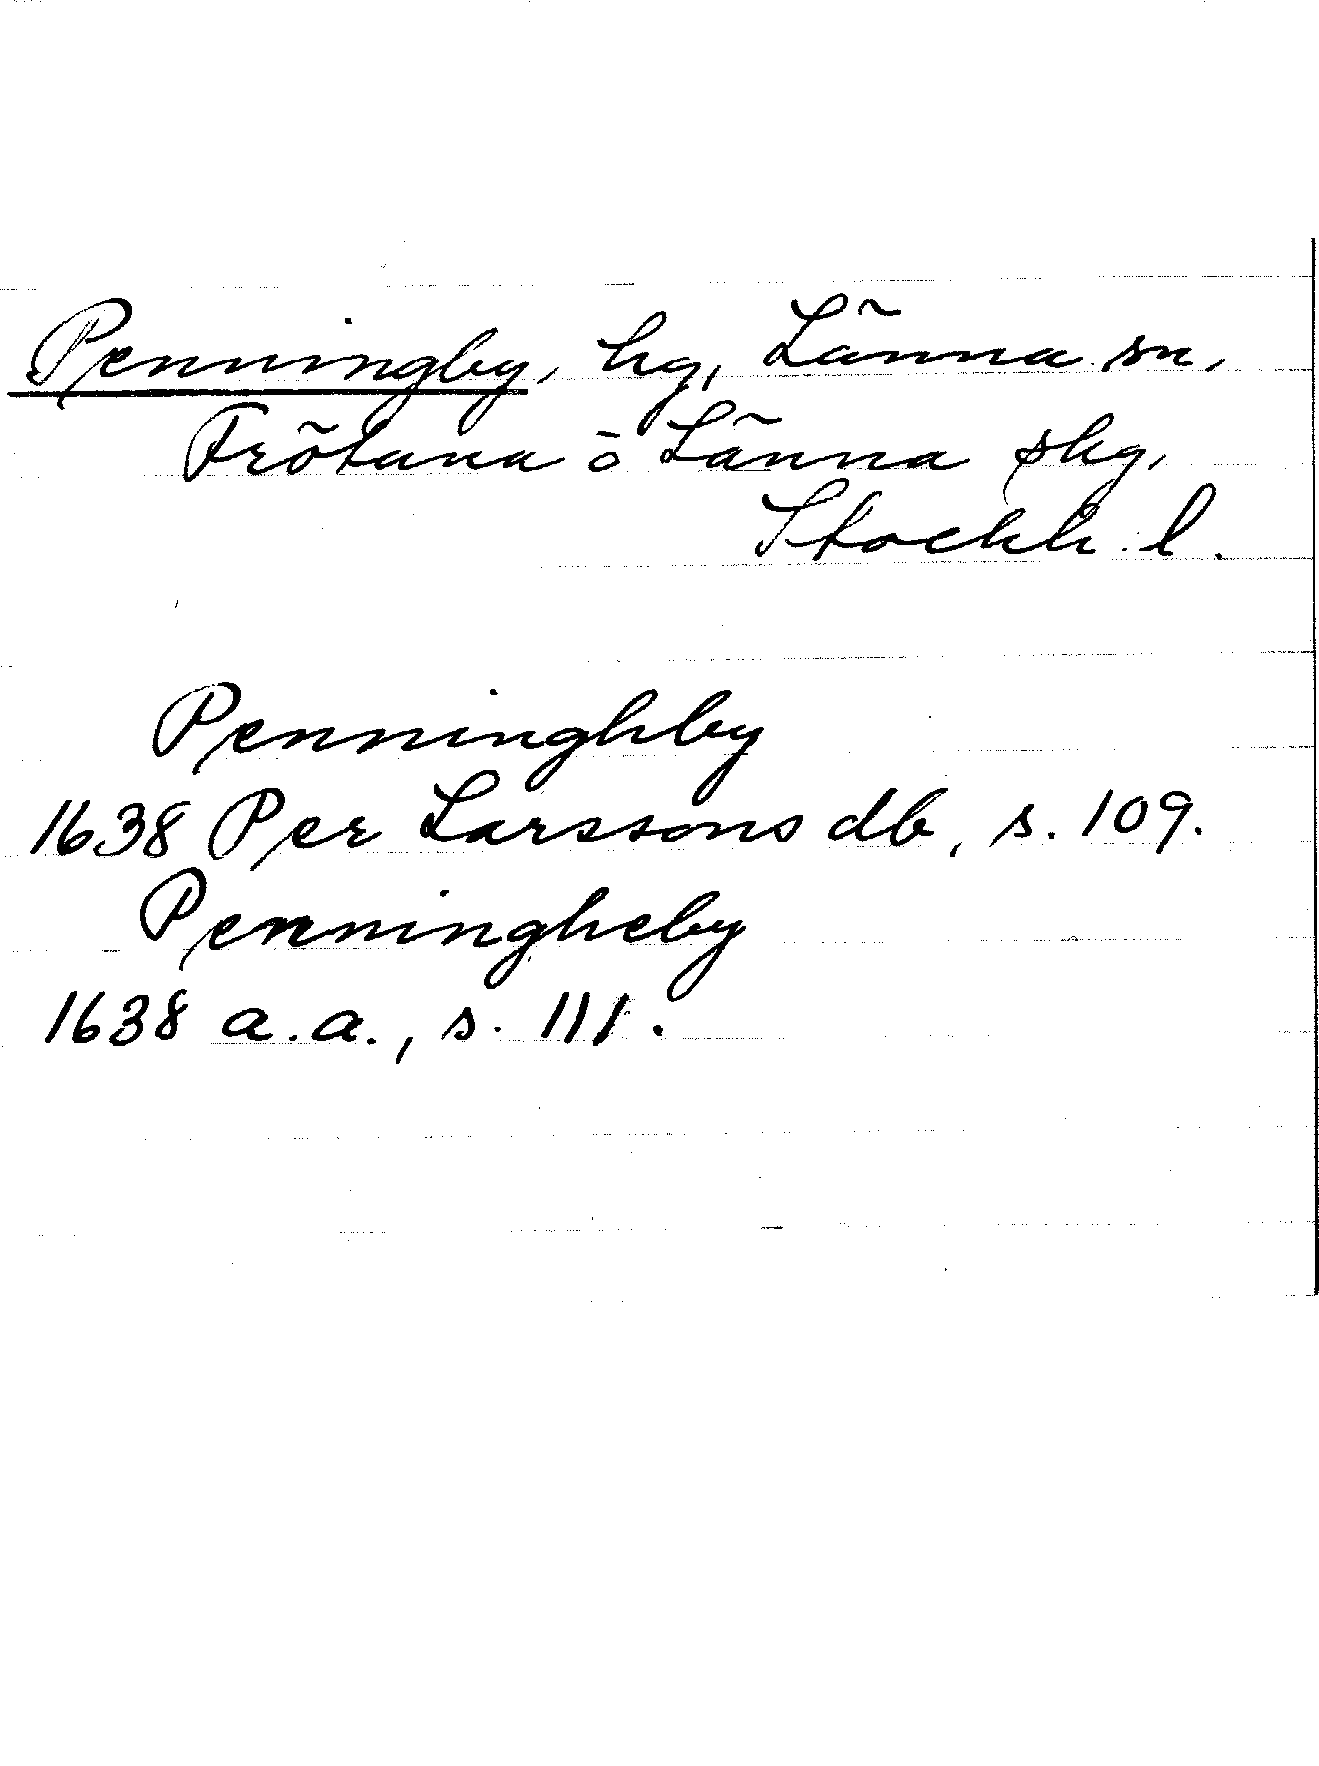 Penningby, hg, Länna sn,
Frötuna o Länna skg,
Stockh. l.
Penninghby
1638 Per Larssons db, s. 109.
Penningheby
1638 a.a., s. 111.